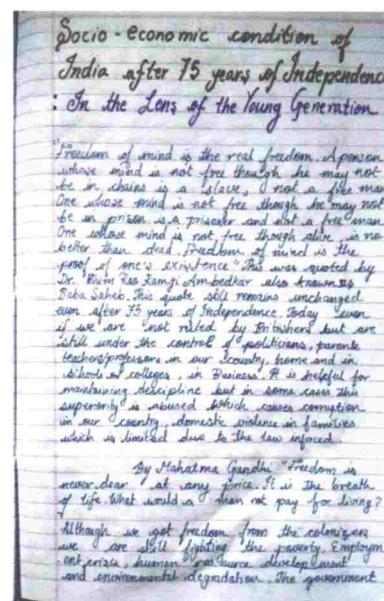 Socio-economic condition of
India after 75 years of Independence
: In the Lens of the Young Generation
"Freedom of mind is the real freedom. A person
whose mind is not free though he may not
be in chains is a slave, not a free man
One whose mind is not free though he may not
be in prison is a prisoner and not a free man
One whose mind is not free though alive is no
better than dead. Freedom of mind is the
proof of one's existence" This was quoted by
Dr. Bhim Rao Ramji Ambedkar also known as
Baba Saheb. This quote still remains unchanged
even after 75 years of Independence. Today even
if we are not ruled by Britishers but are
still under the control of politicians, parents
teachers/professors in our country, home and in
schools or colleges, in Business. It is helpful for
maintaining descipline but in some cases this
superority is abused which causes corruption
in our country, domestic violence in families
which is limited due to the law inforced
By Mahatma Gandhi "Freedom is
never dear at any price. It is the breath
of life. What would a man not pay for living?
"
Although we got freedom from the colonizers
we are still fighting the poverty, Employm
ent crisis, human resource development
and environmental degradation. The government